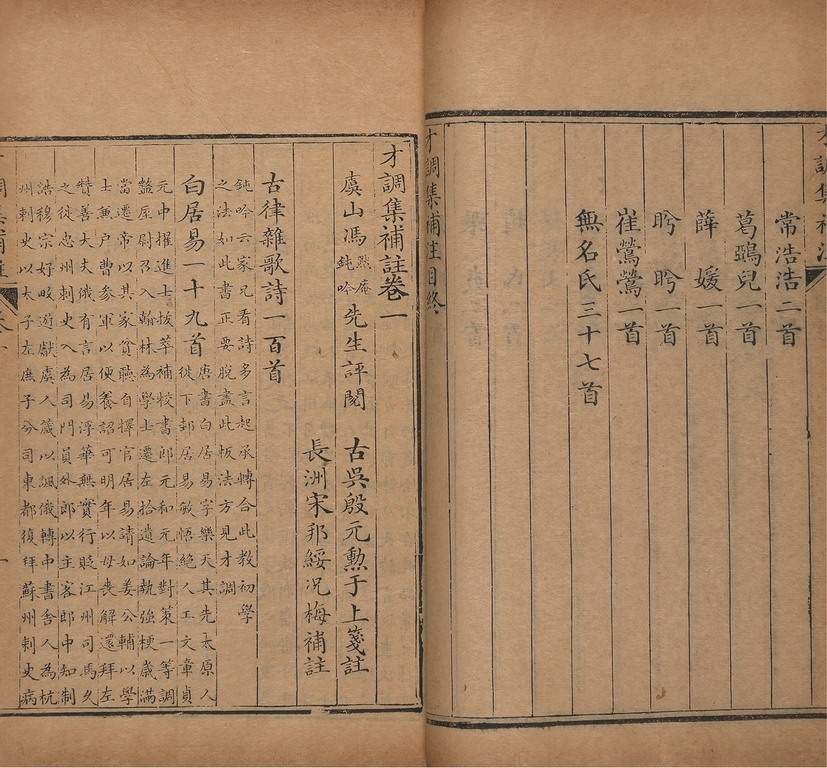 才調集補注
常浩浩二首
葛鵶兒一首
薛媛一首
盻盻一首
崔鶯鶯一首
無名氏三十七首
才調集補註目終
才調集補註卷一
虞山馮默庵鈍吟先生評閱 古吳殷元勲于上箋註
長洲宋邦綏况梅補註
古律雜歌詩一百首
鈍吟云家兄看詩多言起承轉合此教初學
之法如此書正要脫盡此板法方見才調
白居易一十九首
唐書白居易字樂天其先太原人
徙下邽居易敏悟絕人工文章貞
元中擢進士拔萃補校書郎元和元年對策一等調
盩厔尉召入翰林為學士遷左拾遺論執強梗歲滿
當遷帝以其家貧聽自擇官居易請如姜公輔以學
士兼户曹參軍以便養詔可明年以母喪解還拜左
贊善大夫俄有言居易浮華無實行貶江州司馬久
之徙忠州刺史入為司門員外郎以主客郎中知制
誥穆宗好畋遊獻虞人箴以諷俄轉中書舍人為杭
州刺史以太子左庶子分司東都復拜蘇州刺史病